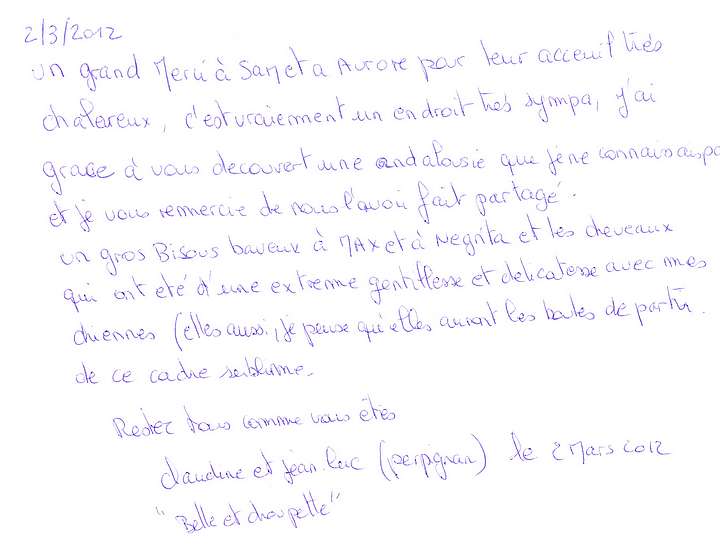 2/3/2012
un grand Merci à Sam et a Aurore par leur acceuil très
chalereux, c'est vraiemment un endroit très sympa, j'ai
grace à vous decouvert une andalousie que je ne connaissais pas
et je vous remmercie de nous l'avoir fait partagé.
un gros Bisous baveux à MAX et à Negrita et les cheveaux
qui ont été d'une extreme gentillesse et delicatesse avec mes
chiennes (elles aussi, je pense qu'elles auront les boules de partir.
de ce cadre sublime.
Restez tous comme vous êtes
Claudine et jean.luc (perpignan) le 2 Mars 2012
"Belle et choupette"